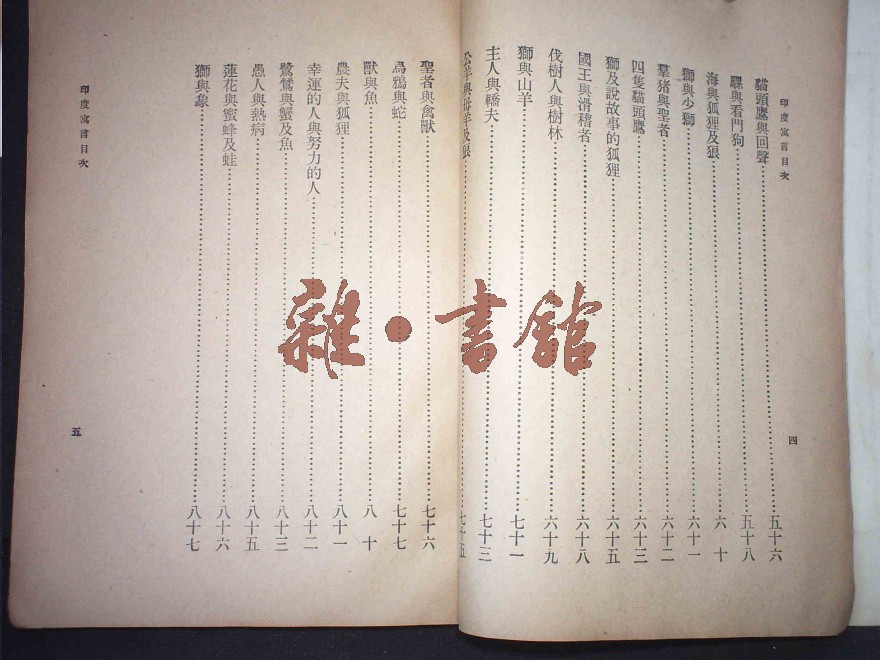 印度寓言目次
貓頭鷹與回聲……五十六
騾與看門狗……五十八
海與狐狸及狼……六十
獅與少獅……六十一
羣猪與聖者……六十二
四隻貓頭鷹……六十三
獅及說故事的狐狸……六十五
國王與滑稽者……六十八
伐樹人與樹林……六十九
獅與山羊……七十一
主人與轎夫……七十三
公羊與母羊及狼……七十五
四
聖者與禽獸……七十六
烏鴉與蛇……七十七
獸與魚……八十
農夫與狐狸……八十一
幸運的人與努力的人……八十二
鷺鷥與蟹及魚……八十三
愚人與熱病……八十五
蓮花與蜜蜂及蛙……八十六
獅與象……八十七
印度寓言目次
五
雜·書館